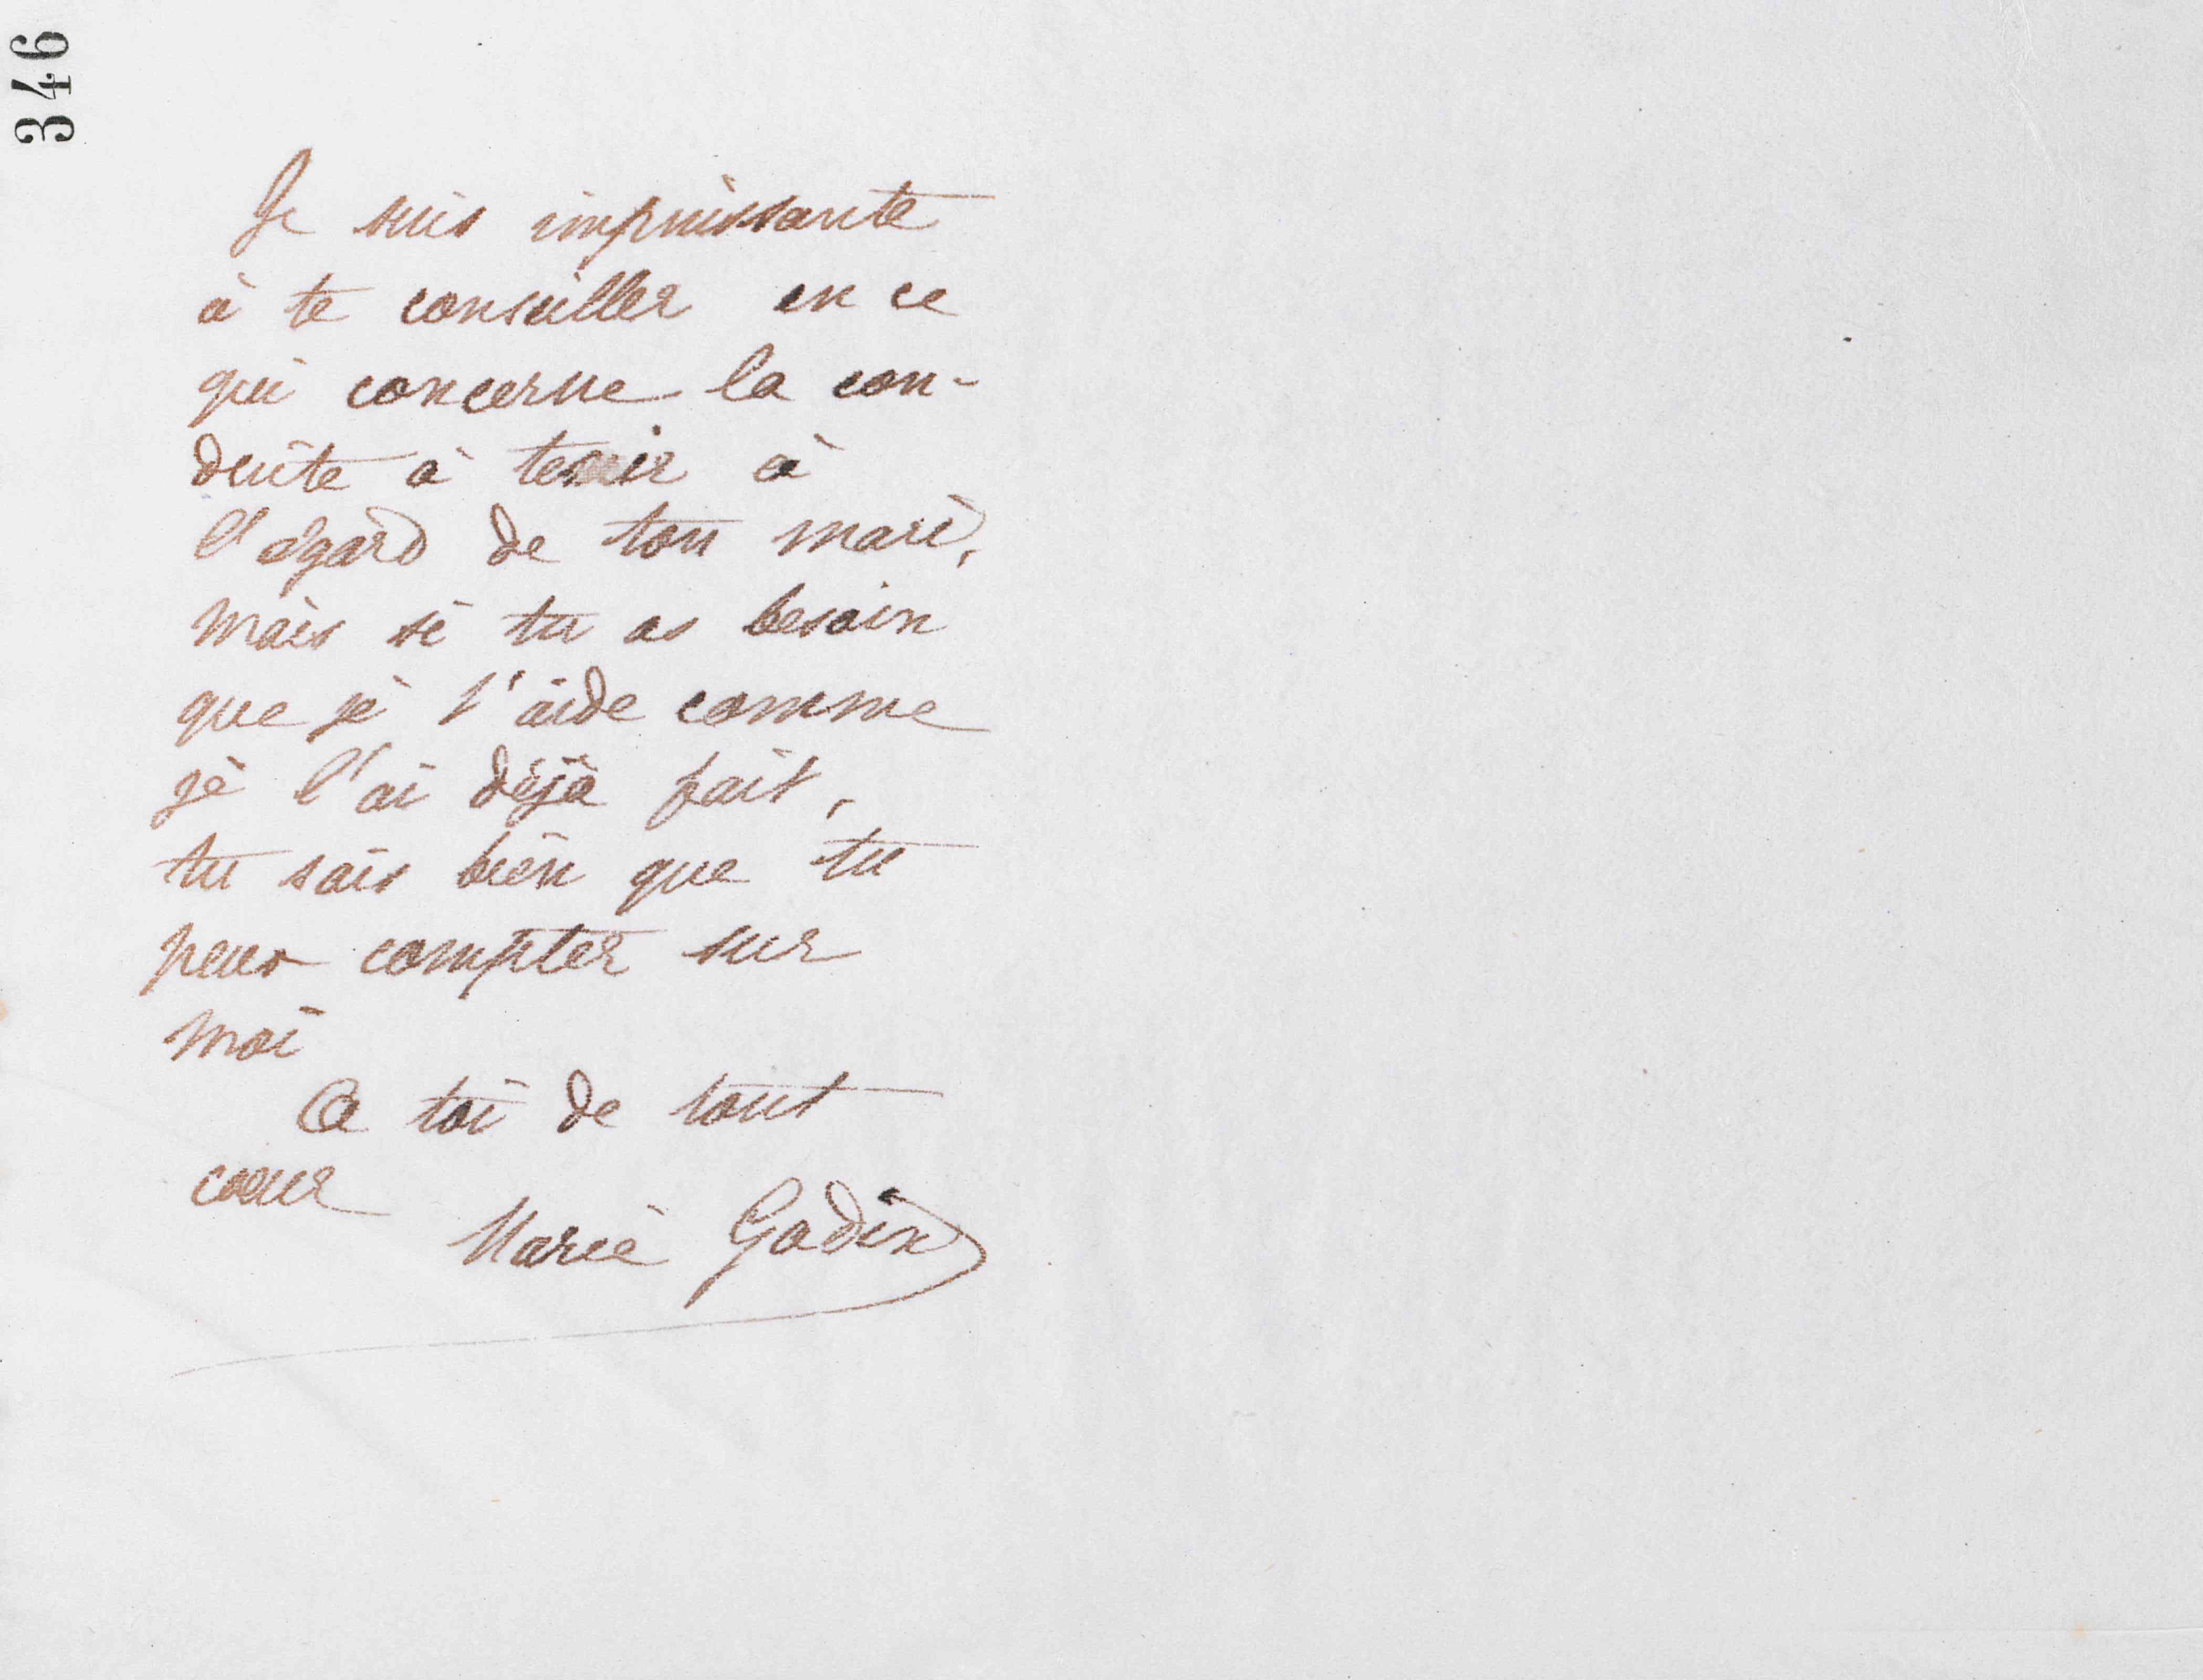 346
Je suis impuissante
à te conseiller en ce
qui concerne la con-
duite à tenir à
l'égard de ton mari,
mais si tu as besoin
que je t'aide comme
je l'ai déjà fait,
tu sais bien que tu
peux compter sur
moi
A toi de tout
cœur
Marie Godin